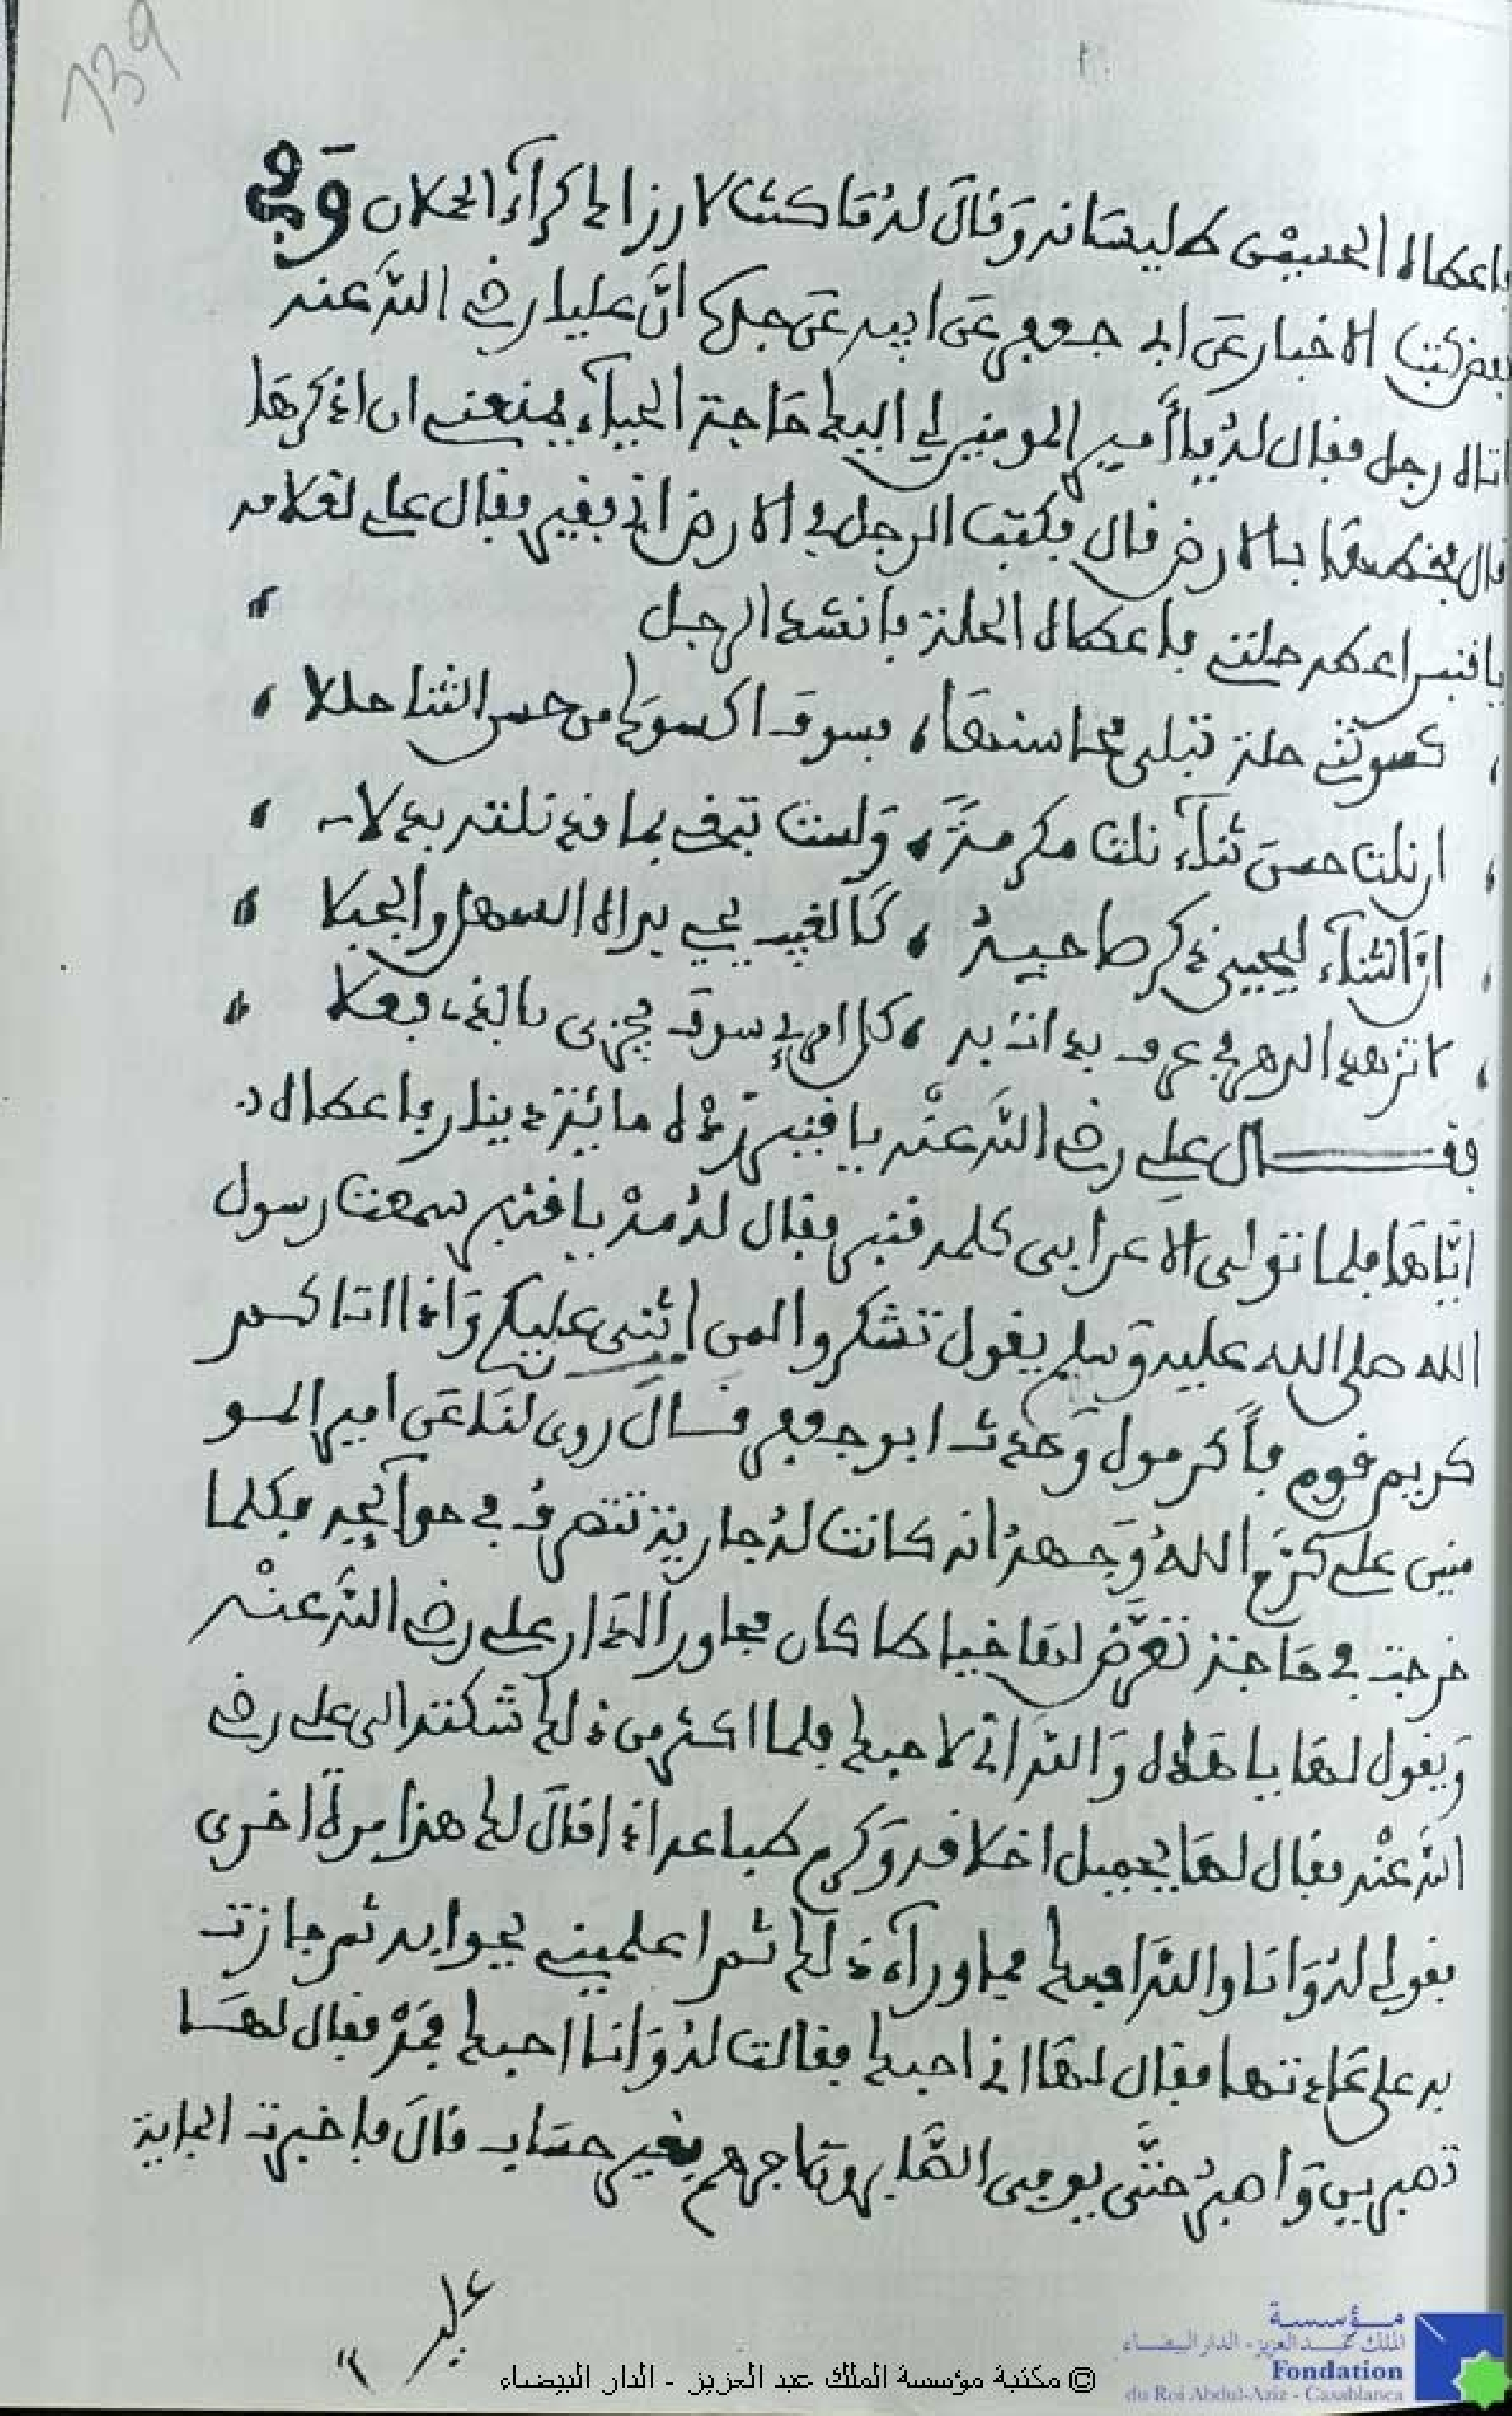 139
باعطاه الحسين طليسانه وقال له ما كنت لارزا في كرآء الحملان وفي
بعض كتب الاخبار عن ابي جعفر عن ابيه عن جده ان عليا رضي الله عنه
اتاه رجل فقال له يا أمير المومنين لي اليك حاجة الحيآء يمنعني ان اذكرها
قال فخطها بالارض قال فكتب الرجل في الارض اني فقير فقال علي لغلامه
يا قنبر اعطه حلتي فاعطاه الحلة فانشد الرجل
كسوتني حلة تبلى محاسنها، فسوف اكسوك من حسن الثنا حللا
ان نلت حسن ثنآء نلت مكرمة، ولست تبغي بما قد نلته بدلا
ان الثنآء ليحيي ذكر صاحبه، كالغيث يحيي نداه السهل والجبلا
لا تزهد الدهر في عرف بدات به، كل امرئ سوف يجزى بالذي فعلا
فقال علي رضي الله عنه يا قنبر زده مائة دينار فاعطاه
اياها فلما تولى الاعرابي كلمه قنبر فقال له مه يا قنبر سمعت رسول
الله صلى الله عليه وسلم يقول تشكروا لمن اثنى عليكم واذا اتاكم
كريم قوم فأكرموه وحدث ابو جعفر قال روى لنا عن امير المو
منين علي كرم الله وجهه انه كانت له جارية تتصرف في حوآئجه فكلما
خرجت في حاجة تعرض لها خياط كان مجاور الدار علي رضي الله عنه
ويقول لها يا هذه والله اني لاحبك فلما اكثر من ذلك شكته الى علي رضي
الله عنه فقال لها بجميل اخلاقه وكرم طباعه اذا قال لك هذا مرة اخرى
فقولي له وانا والله احبك فما ورآء ذلك ثم اعلميني بجوابه ثم جازت
به على عادتها فقال لها اني احبك فقالت له وانا احبك فمه فقال لها
تصبرين واصبر حتى يوفى الصابرون اجرهم بغير حساب قال فاخبرت الجارية
عليه
© مكتبة مؤسسة الملك عبد العزيز - الدار البيضاء
مؤسسة
الملك عبد العزيز - الدار البيضاء
Fondation
du Roi Abdul-Aziz - Casablanca